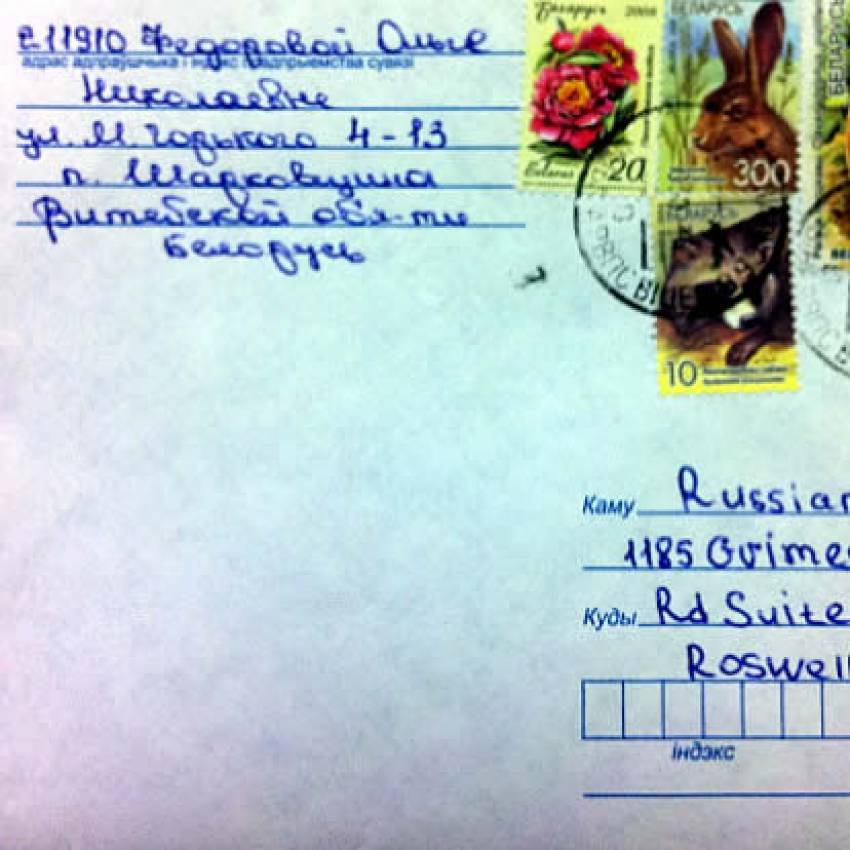 211910 Федоровой Ольге
адрас адпраўшчыка і індэкс прадпрыемства сувязі
Николаевне
ул. М. Горького 4-13
п. Шарковщина
Витебской обл-ти
Белорусь
Беларусь 2008
Belarus 20
БЕЛАРУСЬ
300
БЕЛАРУСЬ
10
БЕЛАРУСЬ
Каму Russian
1185 Grimes
Куды Rd Suite
Roswell
індэкс